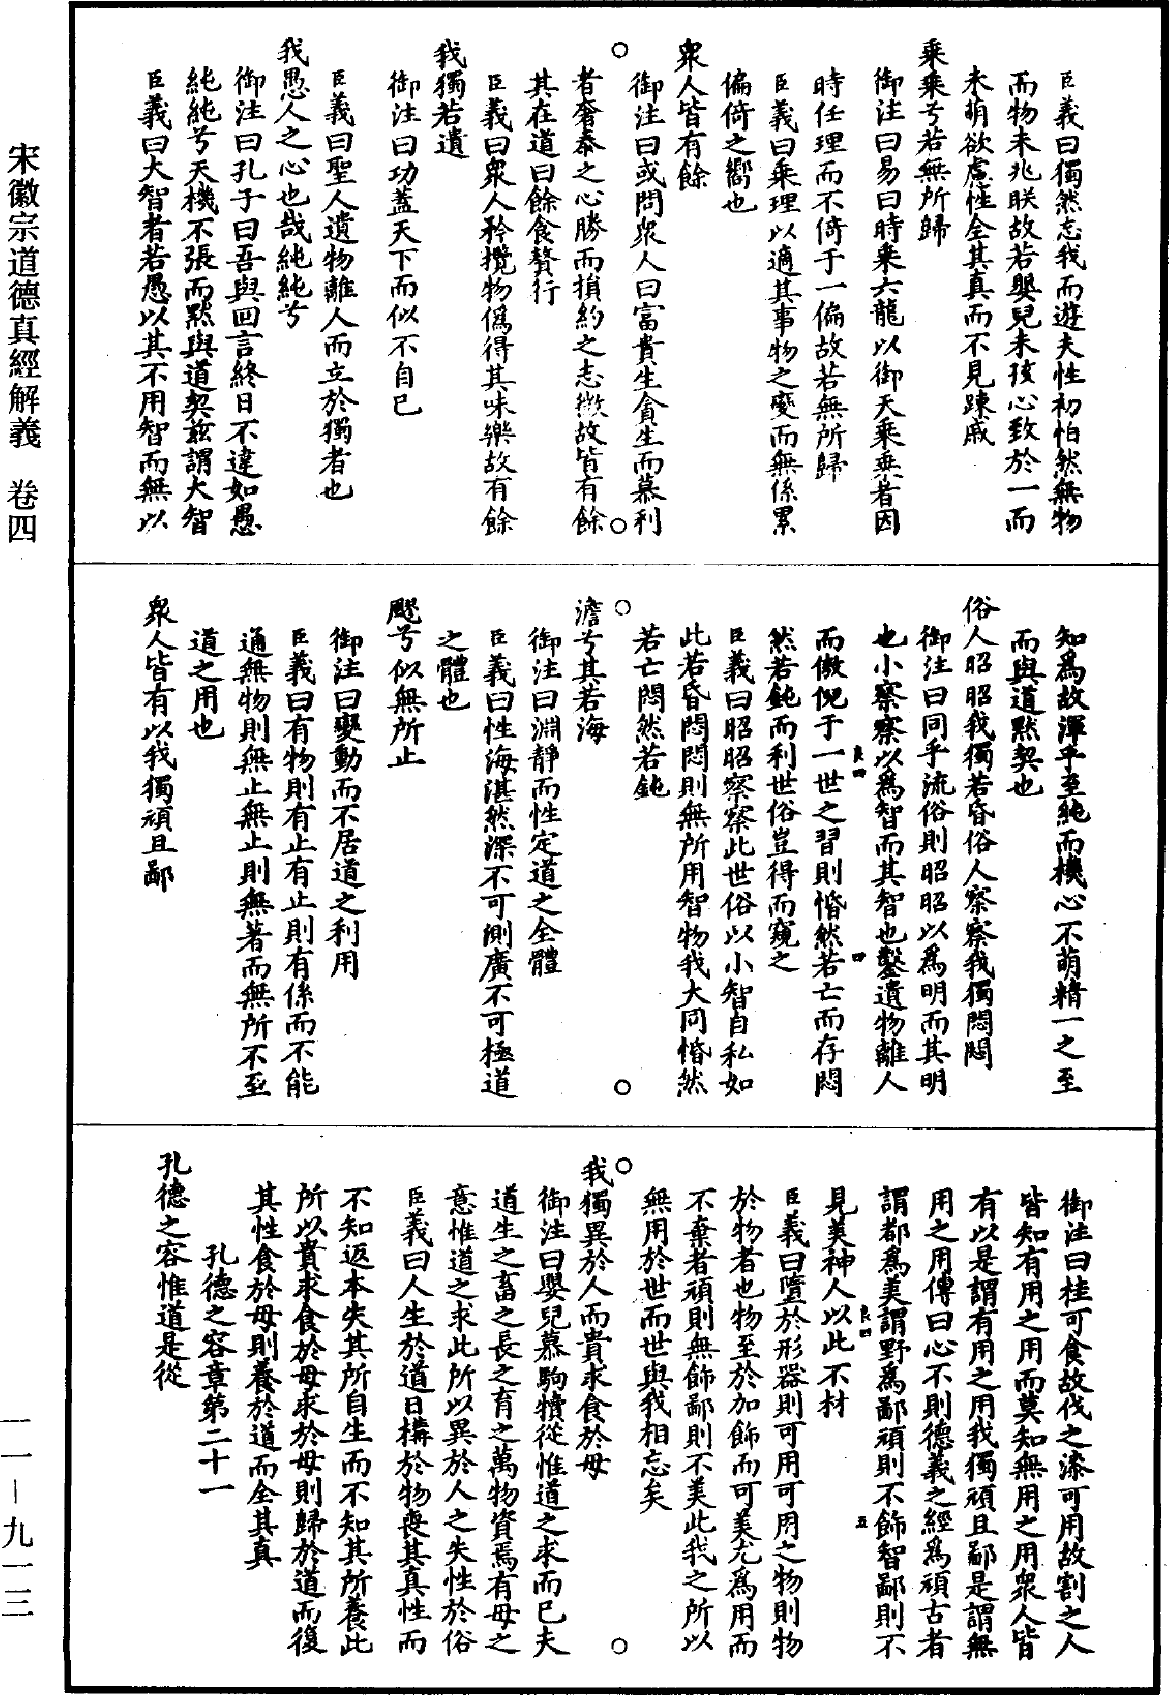 臣義曰獨然忘我而遊夫性初怕然無物
而物未兆朕故若嬰兒未孩心致於一而
未萌欲慮性全其真而不見踈戚
乘乘兮若無所歸
御注曰易曰時乘六龍以御天乘乘者因
時任理而不倚于一偏故若無所歸
臣義曰乘理以適其事物之變而無係累
偏倚之嚮也
衆人皆有餘
御注曰或問衆人曰富貴生貪生而慕利
者奢泰之心勝而損約之志微故皆有餘
其在道曰餘食贅行
臣義曰衆人矜攬物僞得其味樂故有餘
我獨若遺
御注曰功蓋天下而似不自己
臣義曰聖人遺物離人而立於獨者也
我愚人之心也哉純純兮
御注曰孔子曰吾與回言終日不違如愚
純純兮天機不張而默與道契茲謂大智
臣義曰大智者若愚以其不用智而無以
知爲故渾乎至純而機心不萌精一之至
而與道黙契也
俗人昭昭我獨若昏俗人察察我獨悶悶
御注曰同乎流俗則昭昭以爲明而其明
也小察察以爲智而其智也鑿遺物離人
而傲倪于一世之習則惛然若亡而存悶
然若鈍而利世俗豈得而窺之
臣義曰昭昭察察此世俗以小智自私如
此若昏悶悶則無所用智物我大同惛然
若亡悶然若鈍
澹兮其若海
御注曰淵靜而性定道之全體
臣義曰性海湛然深不可測廣不可極道
之體也
飂兮似無所止
御注曰變動而不居道之利用
臣義曰有物則有止有止則有係而不能
通無物則無止無止則無著而無所不至
道之用也
衆人皆有以我獨頑且鄙
御注曰桂可食故伐之漆可用故割之人
皆知有用之用而莫知無用之用衆人皆
有以是謂有用之用我獨頑且鄙是謂無
用之用傳曰心不則德義之經爲頑古者
謂都爲美謂野爲鄙頑則不飾智鄙則不
見美神人以此不材
臣義曰墮於形器則可用可用之物則物
於物者也物至於加飾而可美尤爲用而
不棄者頑則無飾鄙則不美此我之所以
無用於世而世與我相忘矣
我獨異於人而貴求食於母
御注曰嬰兒慕駒犢從惟道之求而已夫
道生之畜之長之育之萬物資焉有母之
意惟道之求此所以異於人之失性於俗
臣義曰人生於道日構於物喪其真性而
不知返本失其所自生而不知其所養此
所以貴求食於母求於母則歸於道而復
其性食於母則養於道而全其真
孔德之容章第二十一
孔德之容惟道是從
良四
四
良四
五
宋徽宗道德真經解義 卷四
一一—九一三